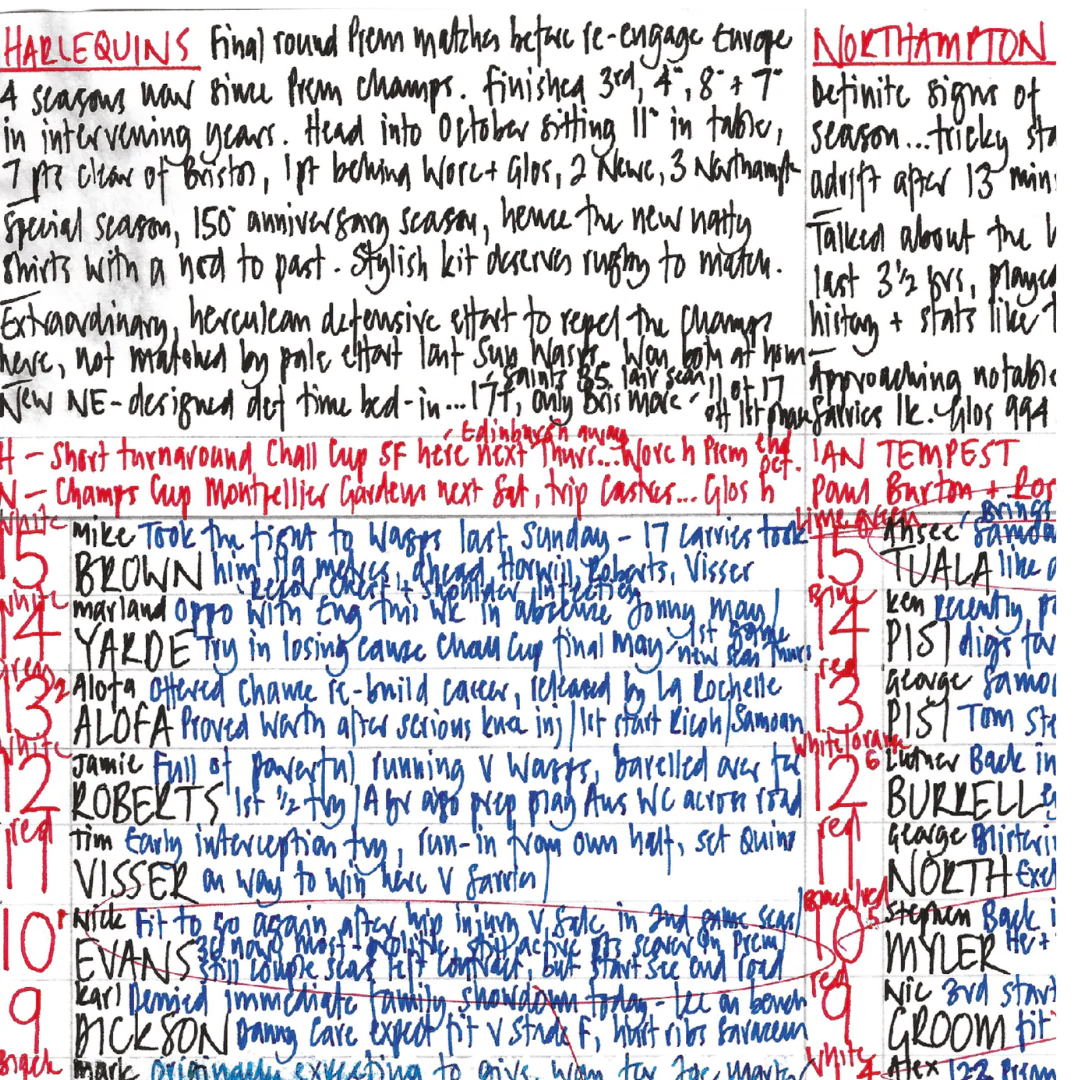 HARLEQUINS Final round Prem matches before re-engage Europe
4 seasons now since Prem champs. Finished 3rd, 4th, 8th + 7th
in intervening years. Head into October sitting 11th in table,
7 pts clear of Bristol, 1pt behind Worc + Glos, 2 Newc, 3 Northampt
Special season, 150th anniversary season, hence the new natty
shirts with a nod to past. Stylish kit deserves rugby to match.
Extraordinary, herculean defensive effort to repel the champs
here, not matched by pale effort last Sun Wasps. Won both at hom
Saints 85 last seas
New NE-designed def time bed-in... 17t, only Bris more - 11 of 17
off 1st phase
H - Short turnaround Chall Cup SF here next Thurs... Worc h Prem end Oct.
Edinburgh away
N - Champs Cup Montpellier Gardens next Sat, trip Castres... Glos h
White
15 Mike BROWN Took the fight to Wasps last Sunday - 17 carries took
him 119 metres, ahead Horwill, Roberts, Visser
Recov chest + shoulder infection
White
14 Marland YARDE Oppo with Eng this wk in absence Jonny May/
Try in losing cause Chall Cup final May
1st game
new seas Thurs
13 Alofa ALOFA Offered chance re-build career, released by La Rochelle
Proved worth after serious knee inj/1st start Ricoh/Samoan
White
12 Jamie ROBERTS Full of powerful running v Wasps, barelled over for
1st ½ try/A yr ago prep play Aus WC across road
red
11 Tim VISSER Early interception try, run-in from own half, set Quins
on way to win here v Sarries/
10 Nick EVANS Fit to go again after hip injury v Sale in 2nd game seas/
36 now, most-prolific, still active pts scorer in Prem/
still couple seas left contract, but start see end road
9 Karl DICKSON Denied immediate family showdown today - Lee on bench
Danny Care expect fit v Stade F, hurt ribs Saracens
Black
Mark originally expecting to give way for Joe Marler
NORTHAMPTON
Definite signs of
season... tricky sta
adrift after 13 min
Talked about the
last 3½ yrs, played
history + stats like
Approaching notable
Sarries Ic. Glos 994
IAN TEMPEST
Paul Burton + Ros
Lime green
15 Ahsee TUALA Brings
Samoa
like
Blue
14 Ken PISI recently
digs
red
13 George PISI Samo
Tom Ste
White/orange
12 Luther BURRELL Back in
red
11 George NORTH Blisterin
Exc
Black/red
10 Stephen MYLER Back i
He +
red
9 Nic GROOM 3rd start
fit
White
4 Alex 122 Prem